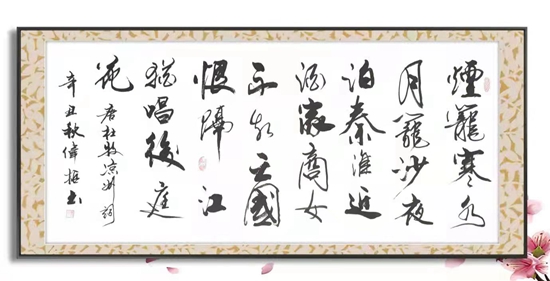 煙籠寒水
月籠沙夜
泊秦淮近
酒家商女
不知亡國
恨隔江
猶唱後庭
花 唐杜牧涼州詞
辛丑秋偉書